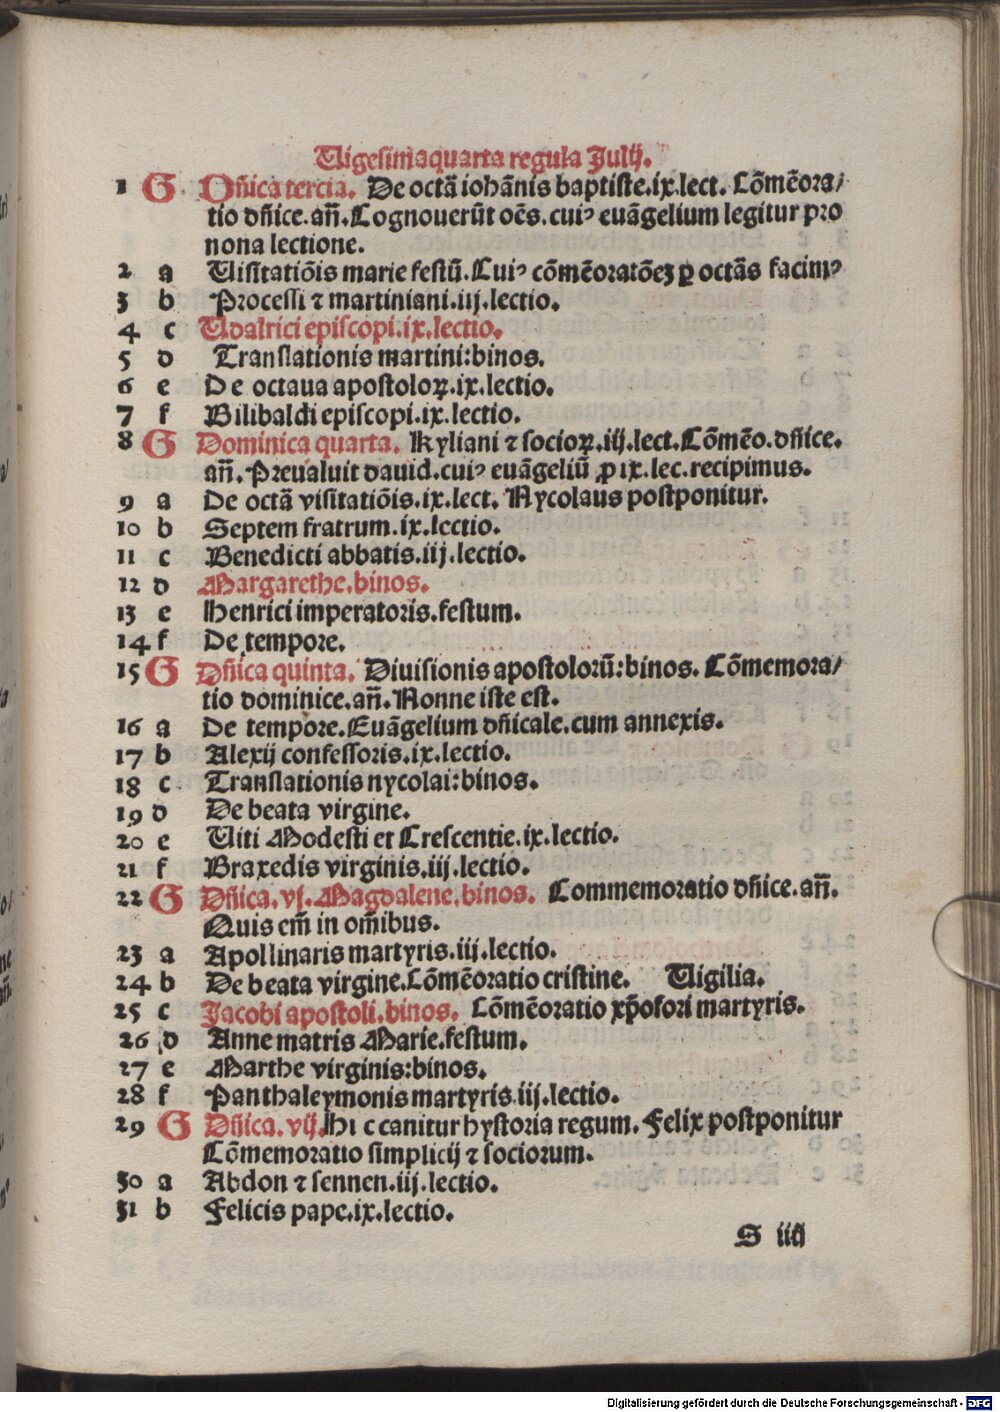 Uigesimaquarta regula Julij.
1 G Dñica tercia. De octã iohãnis baptiste.ix.lect. Cõmẽora/
tio dñice.añ. Cognouerũt oẽs.cuiꝰ euãgelium legitur pro
nona lectione.
2 a Uisitatiõis marie festũ. Cuiꝰ cõmẽoratõeʒ ꝑ octãs facimꝰ
3 b Processi ⁊ martiniani.iij.lectio.
4 c Udalrici episcopi.ix.lectio.
5 d Translationis martini:binos.
6 e De octaua apostoloꝝ.ix.lectio.
7 f Bilibaldi episcopi.ix.lectio.
8 G Dominica quarta. Kyliani ⁊ socioꝝ.iij.lect. Cõmẽo.dñice.
añ. Preualuit dauid.cuiꝰ euãgeliũ ꝓ ix.lec.recipimus.
9 a De octã visitatiõis.ix.lect. Nycolaus postponitur.
10 b Septem fratrum.ix.lectio.
11 c Benedicti abbatis.iij.lectio.
12 d Margarethe.binos.
13 e Henrici imperatoris.festum.
14 f De tempore.
15 G Dñica quinta. Diuisionis apostolorũ:binos. Cõmemora/
tio dominice.añ. Nonne iste est.
16 a De tempore. Euãgelium dñicale.cum annexis.
17 b Alexij confessoris.ix.lectio.
18 c Translationis nycolai:binos.
19 d De beata virgine.
20 e Uiti Modesti et Crescentie.ix.lectio.
21 f Braxedis virginis.iij.lectio.
22 G Dñica.vj. Magdalene.binos. Commemoratio dñice.añ.
Quis em̃ in om̃ibus.
23 a Apollinaris martyris.iij.lectio.
24 b De beata virgine. Cõmẽoratio cristine. Uigilia.
25 c Jacobi apostoli.binos. Cõmẽoratio xp̃ofori martyris.
26 d Anne matris Marie.festum.
27 e Marthe virginis:binos.
28 f Panthaleymonis martyris.iij.lectio.
29 G Dñica.vij. Hic canitur hystoria regum. Felix postponitur
Cõmemoratio simplicij ⁊ sociorum.
30 a Abdon ⁊ sennen.iij.lectio.
31 b Felicis pape.ix.lectio.
S iiij
Digitalisierung gefördert durch die Deutsche Forschungsgemeinschaft - DFG